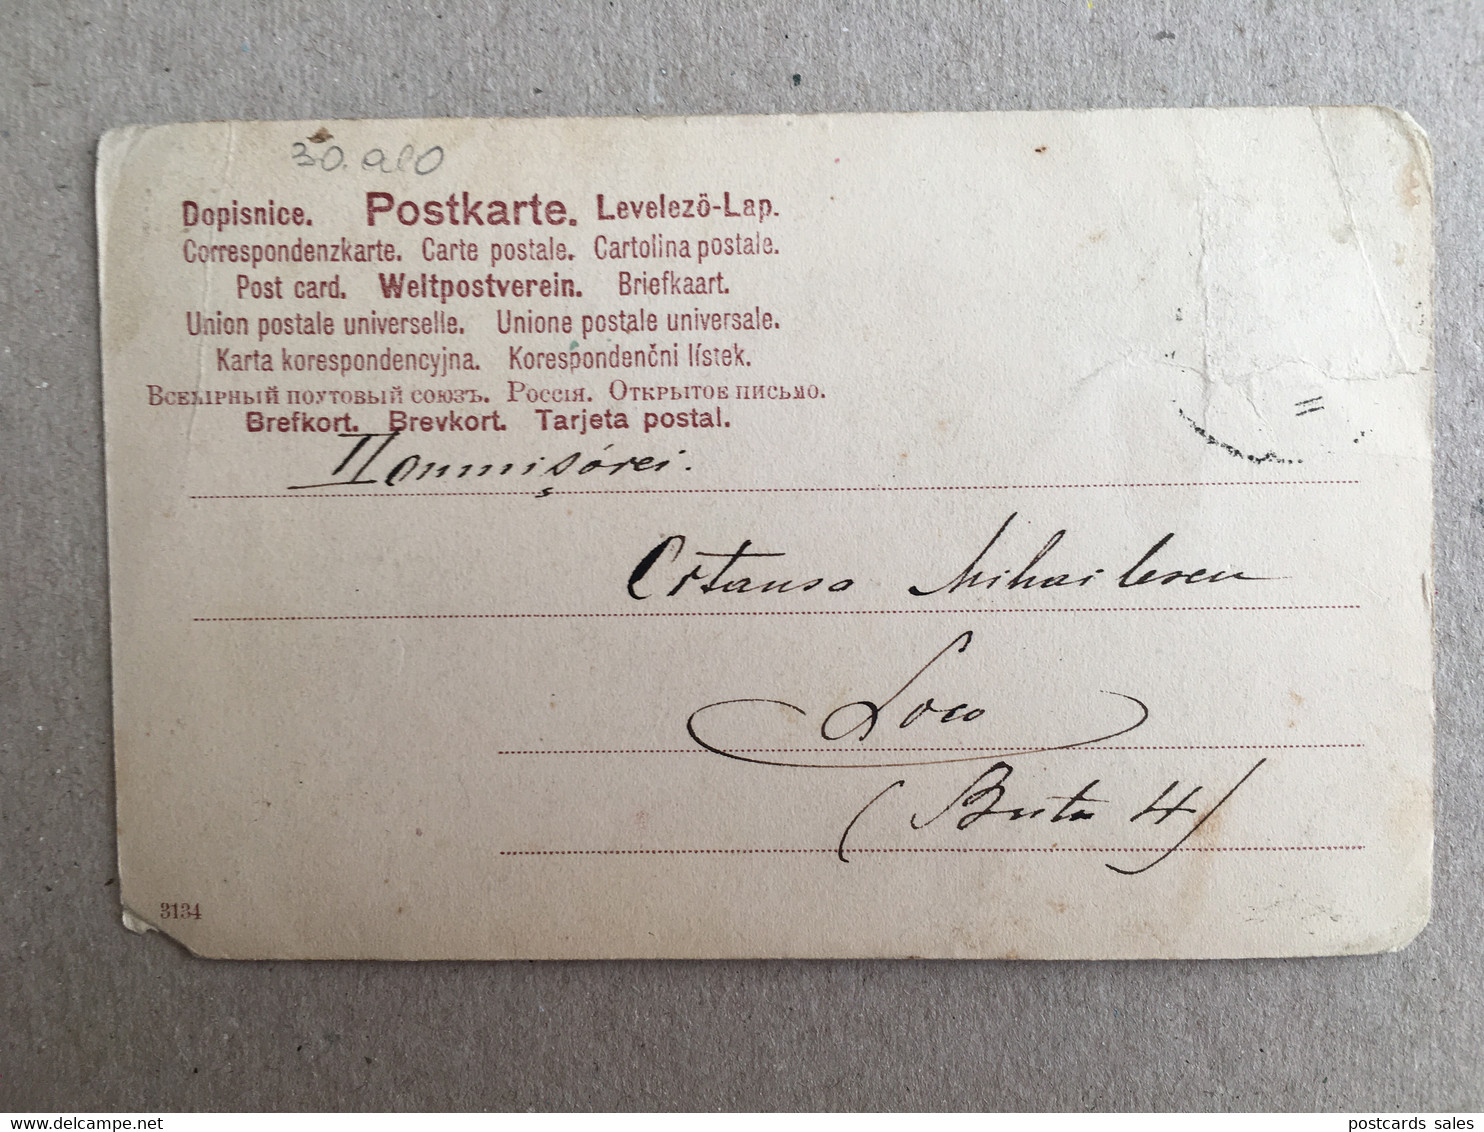 30.
Dopisnice. Postkarte. Levelezö-Lap.
Correspondenzkarte. Carte postale. Cartolina postale.
Post card. Weltpostverein. Briefkaart.
Union postale universelle. Unione postale universale.
Karta korespondencyjna. Korespondenčni lístek.
Всемірный поутовый союзъ. Россія. Открытое письмо.
Brefkort. Brevkort. Tarjeta postal.
Mihailescu
Loco
3134
postcards sales